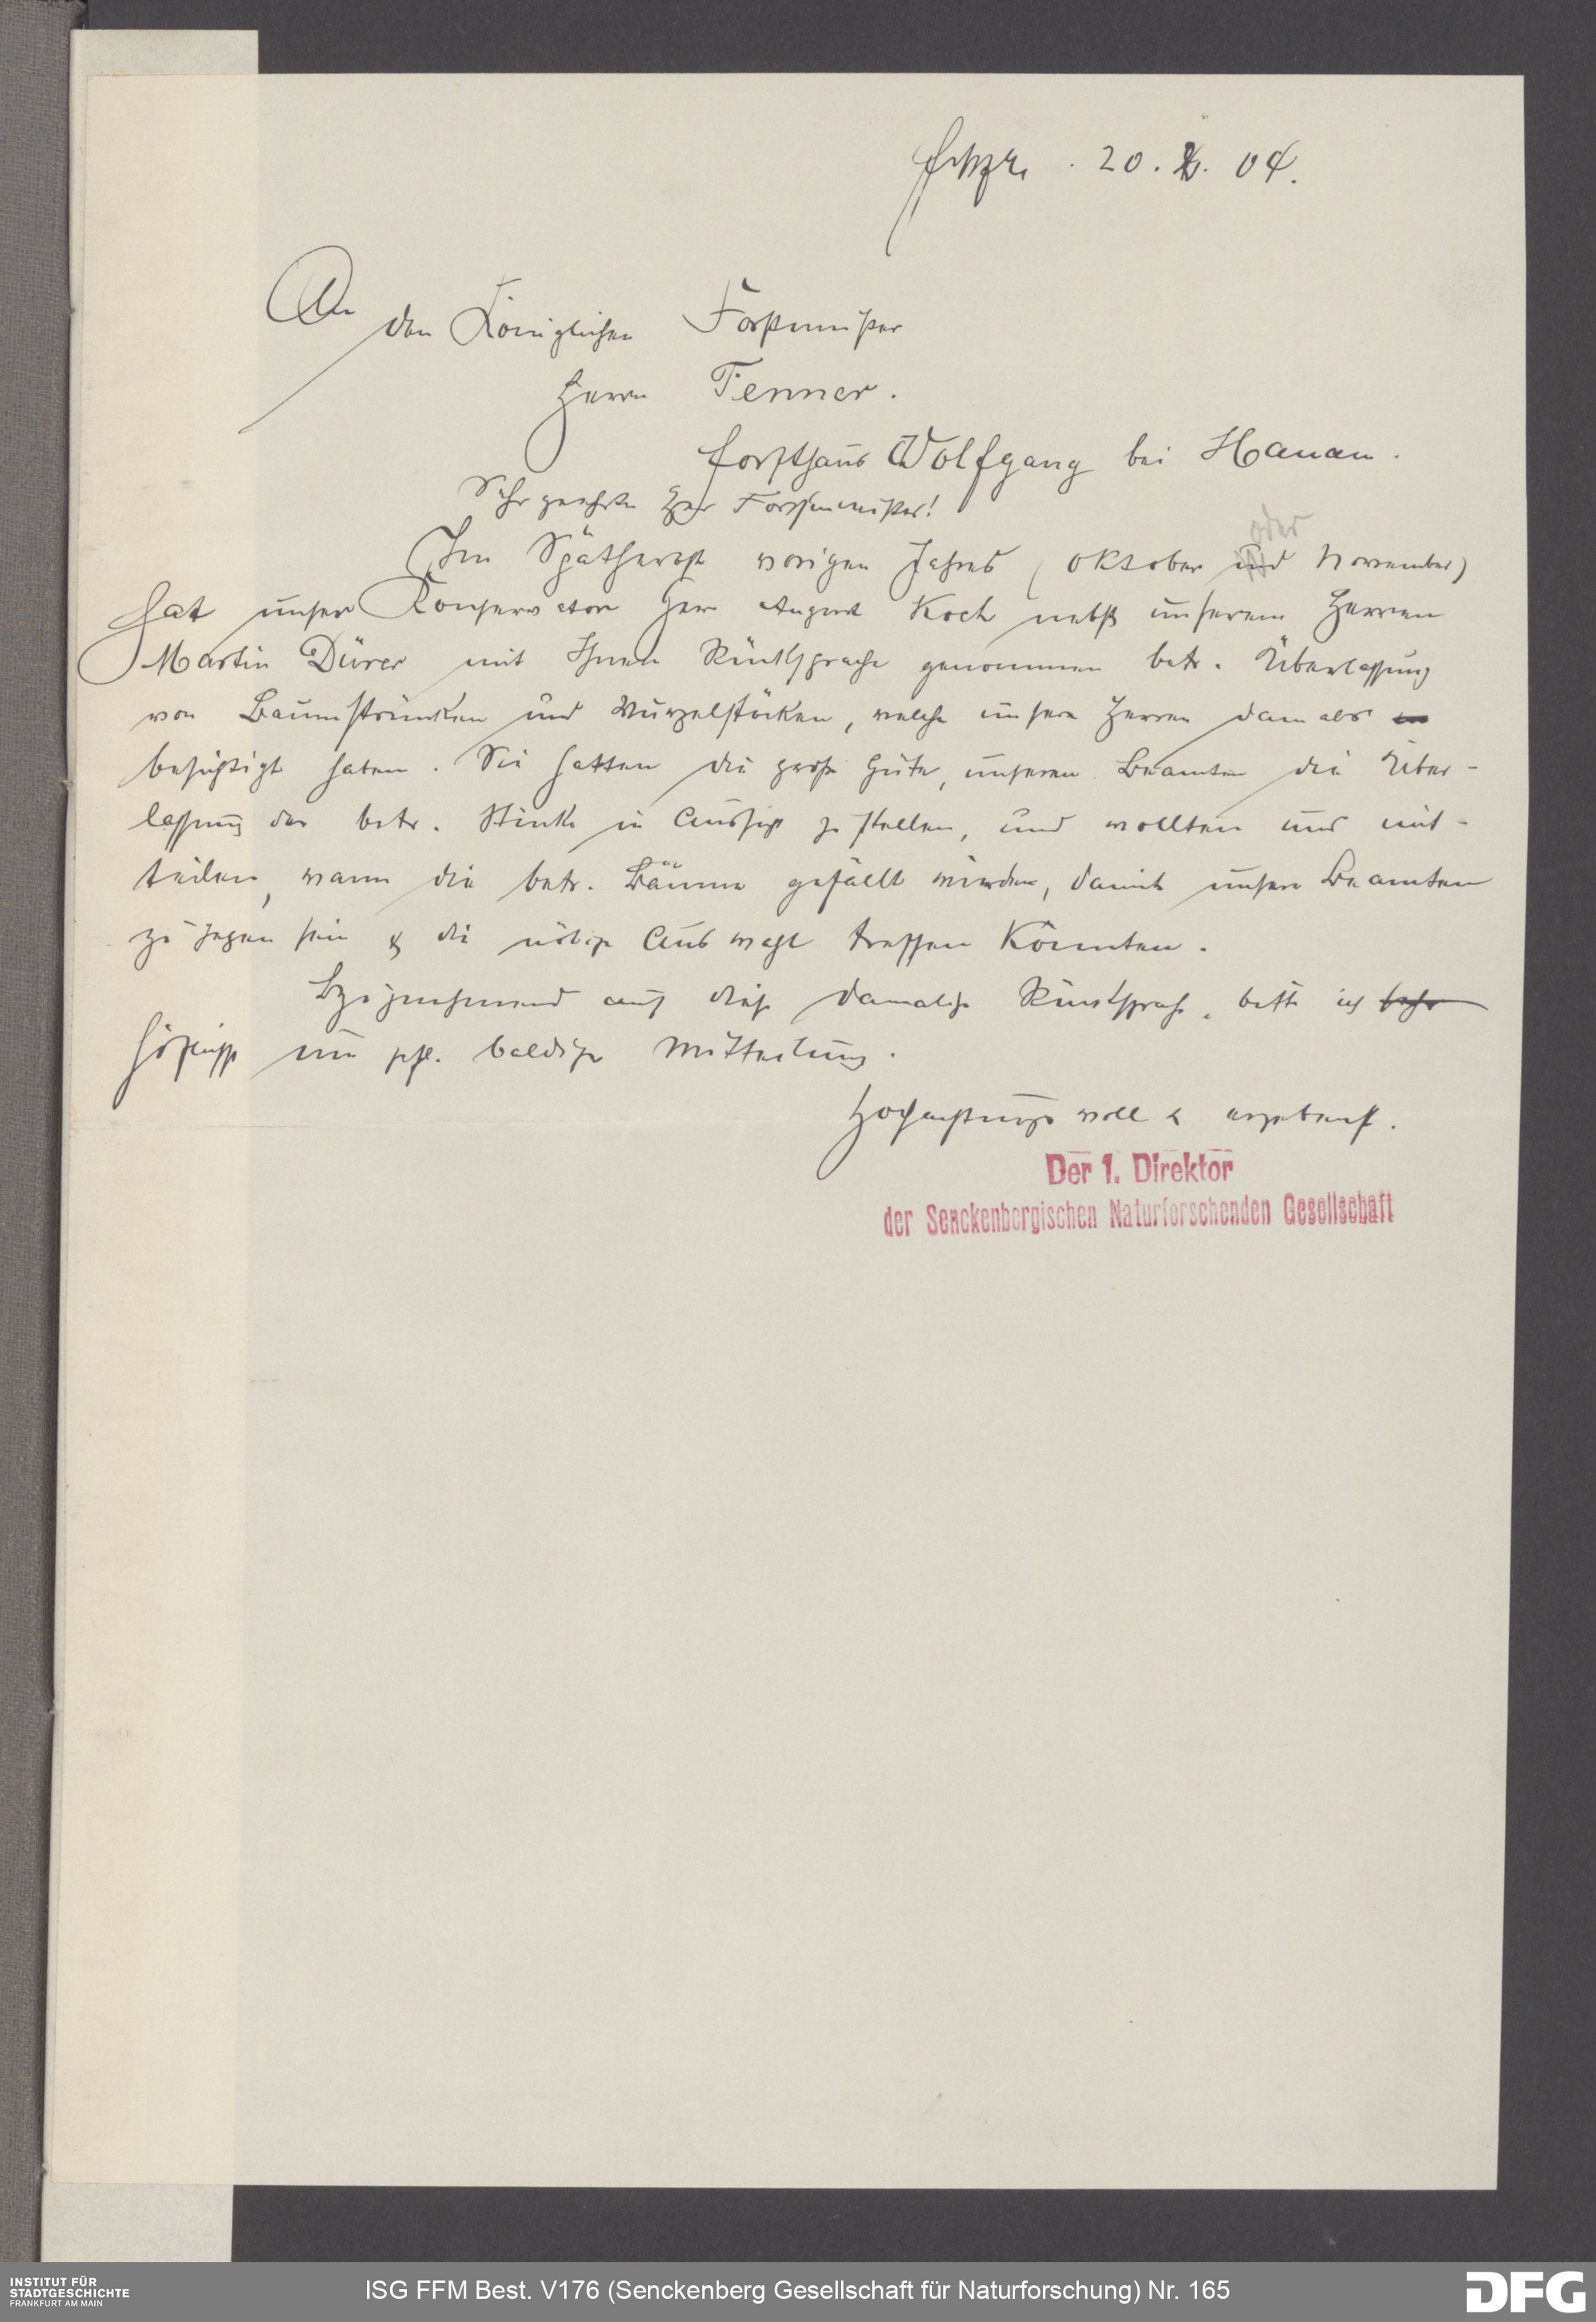 20. X. 04.
An
den Königlichen Forstmeister
Herrn Fenner.
Forsthaus Wolfgang bei Hanau.
Sehr geehrter Herr Forstmeister!
oder
Im Spätherbst vorigen Jahres (Oktober und November)
hat unser Konservator Herr August Koch nebst unserem Herren
Martin Dürer mit Ihnen Rücksprache genommen betr. Überlassung
von Baumstrünken und Wurzelstöcken, welche unsere Herren damals
besichtigt haben. Sie hatten die große Güte, unseren Beamten die Über-
lassung der betr. Stücke in Aussicht zu stellen, und wollten uns mit-
teilen, wann die betr. Bäume gefällt würden, damit unsere Beamten
zugegen sein & die nötige Auswahl treffen könnten.
Bezugnehmend auf diese damalige Rücksprache, bitte ich
höflichst um gefl. baldige Mitteilung.
Hochachtungsvoll & ergebenst.
Der 1. Direktor
der Senckenbergischen Naturforschenden Gesellschaft
INSTITUT FÜR
STADTGESCHICHTE
FRANKFURT AM MAIN
ISG FFM Best. V176 (Senckenberg Gesellschaft für Naturforschung) Nr. 165
DFG